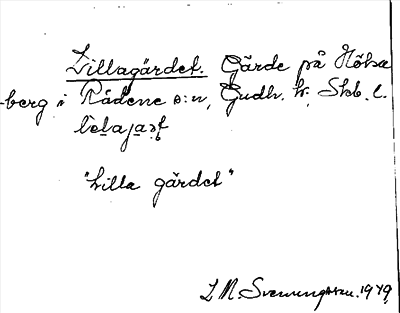 Lillagärdet. Gärde på Höka
-berg i Rådene s:n, Gudh. h; Skb. l.
"Lilla gärdet"
L M. Svenungsson. 1949